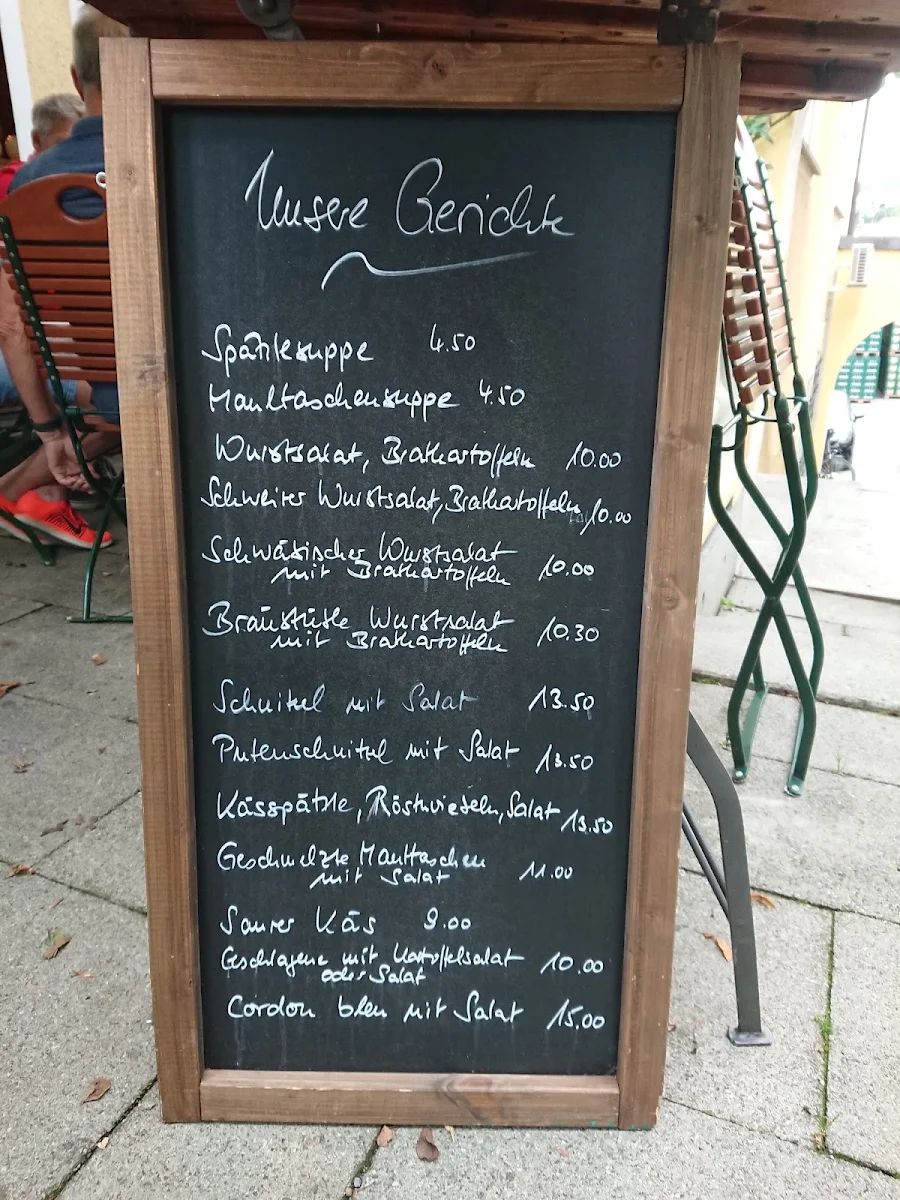 Unsere Gerichte
Spätzlesuppe 4.50
Maultaschensuppe 4.50
Wurstsalat, Bratkartoffeln 10.00
Schweizer Wurstsalat, Bratkartoffeln 10.00
Schwäbischer Wurstsalat
mit Bratkartoffeln 10.00
Bräustüble Wurstsalat
mit Bratkartoffeln 10.30
Schnitzel mit Salat 13.50
Putenschnitzel mit Salat 13.50
Kässpätzle, Röstzwiebeln, Salat 13.50
Geschmelzte Maultaschen
mit Salat 11.00
Saurer Käs 9.00
Geschlagene mit Kartoffelsalat 10.00
oder Salat
Cordon bleu mit Salat 15.00